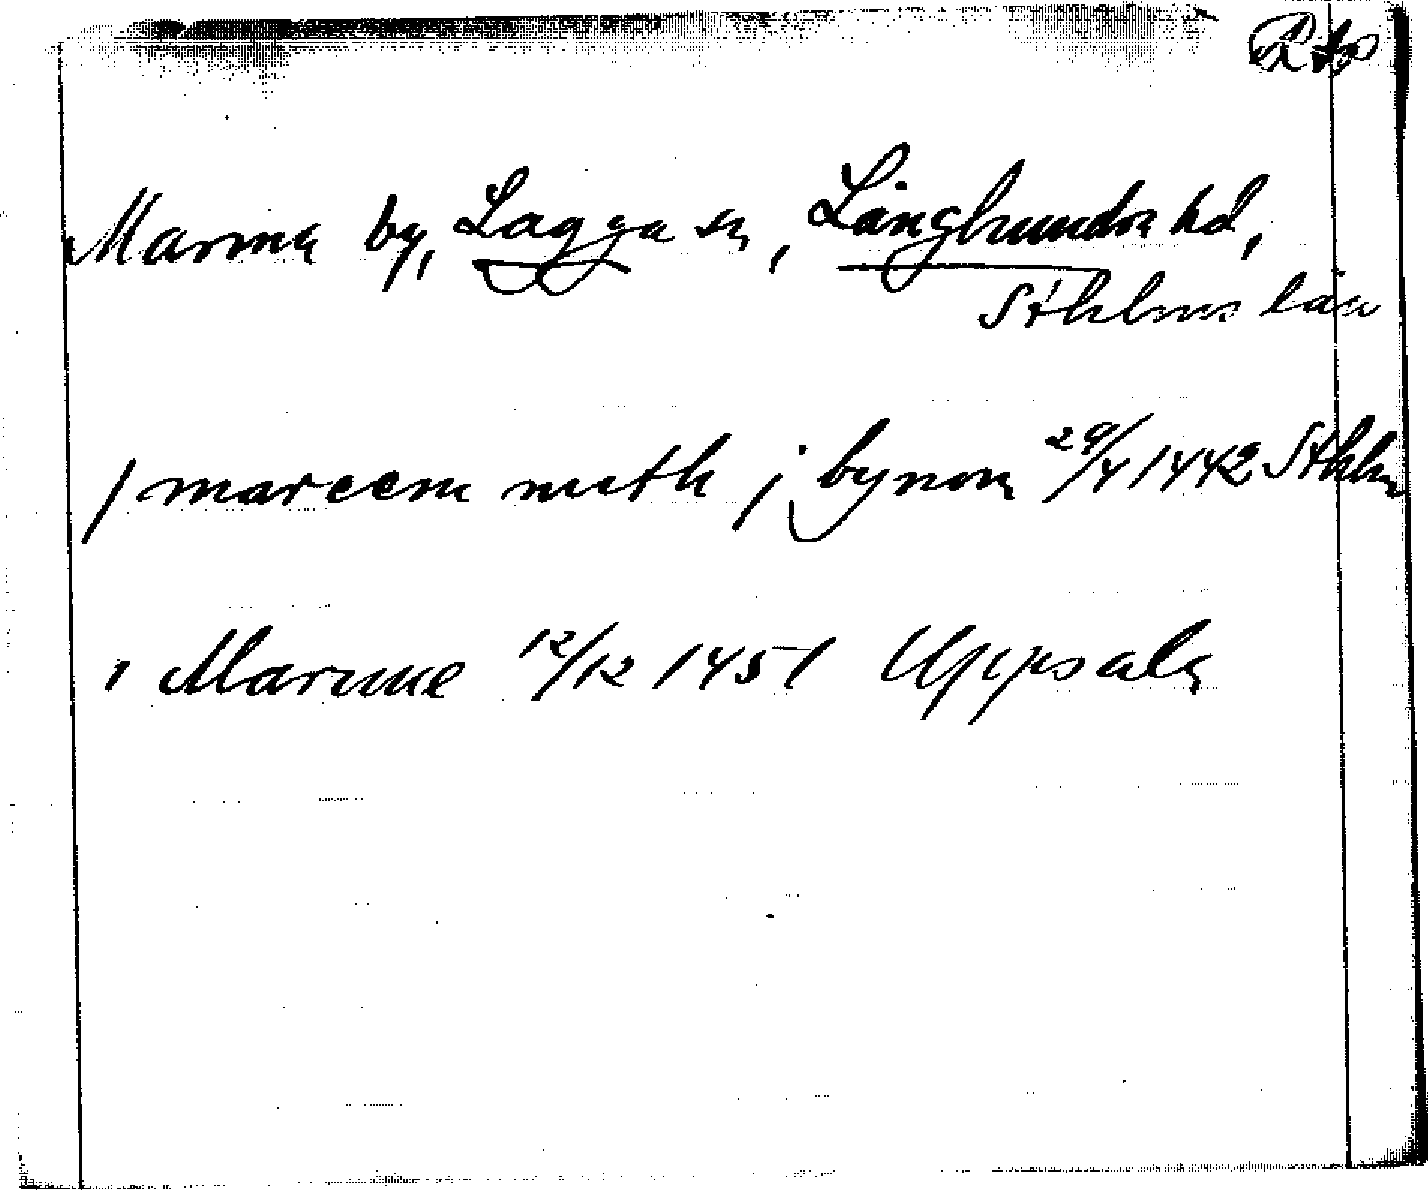 Marma by, Lagga sn, Långhundra hd,
Sthlms län
j mareem neth j bynom 29/4 1442 Sthlm
i Marme 12/12 1451 Uppsala